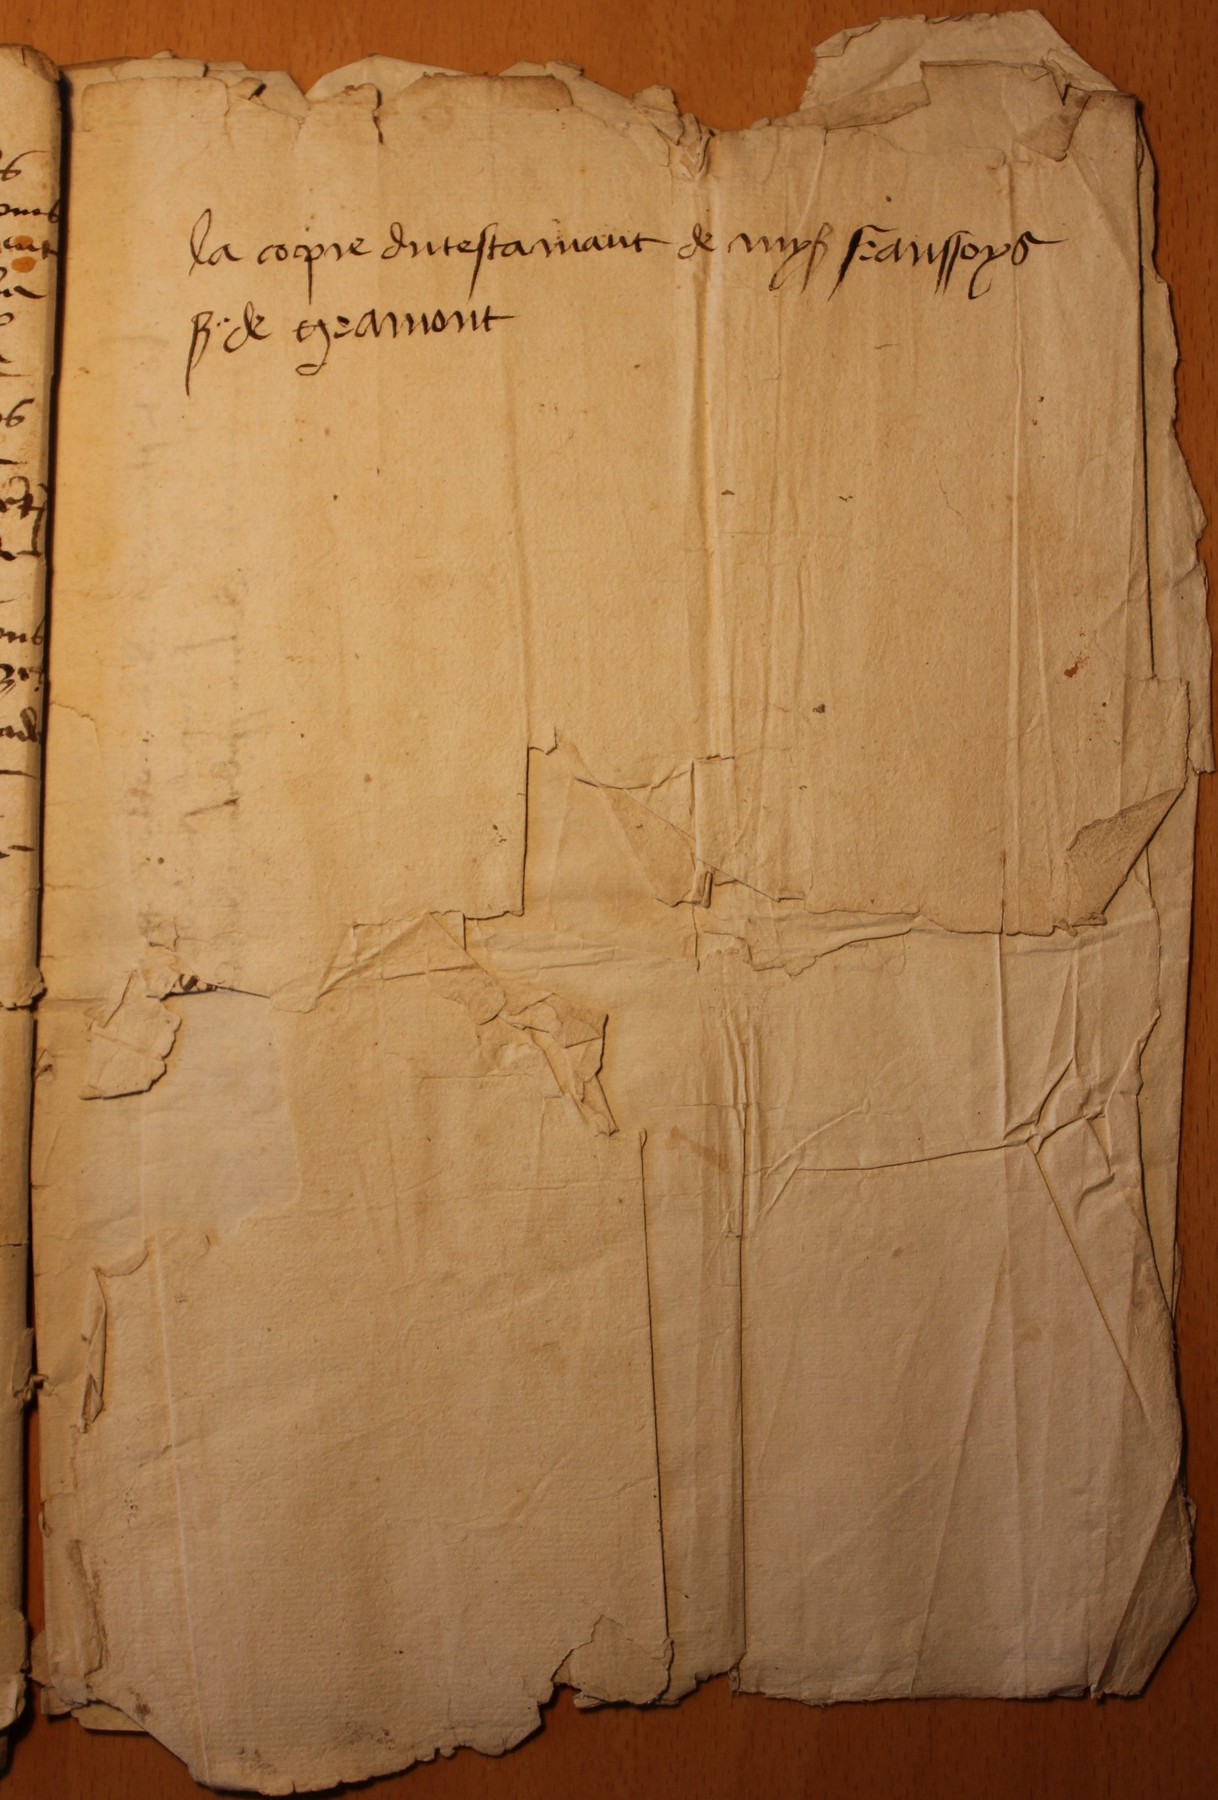 la copie du testamant de mess franssoys
sr de gramont